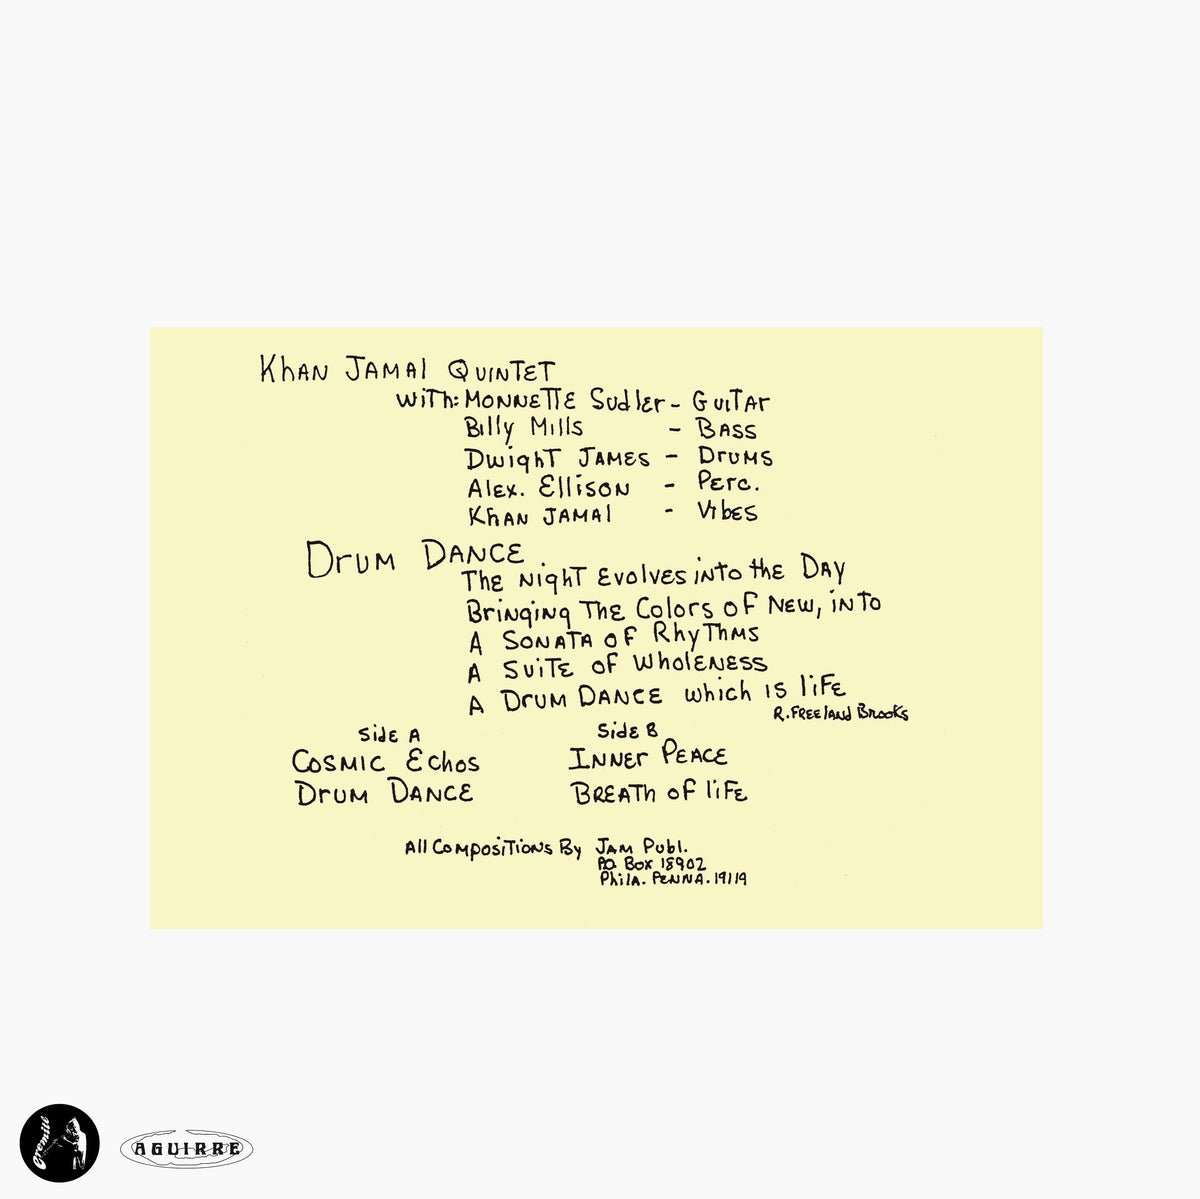 Khan Jamal Quintet
with: Monnette Sudler - Guitar
Billy Mills - Bass
Dwight James - Drums
Alex. Ellison - Perc.
Khan Jamal - Vibes
Drum Dance
The Night Evolves into the Day
Bringing The Colors of New, into
A Sonata of Rhythms
A Suite of Wholeness
A Drum Dance which is life
R. Freeland Brooks
Side A
Cosmic Echos
Drum Dance
Side B
Inner Peace
Breath of life
All Compositions By Jam Publ.
P.O. Box 18902
Phila. Penna. 19119
Eremite
AGUIRRE